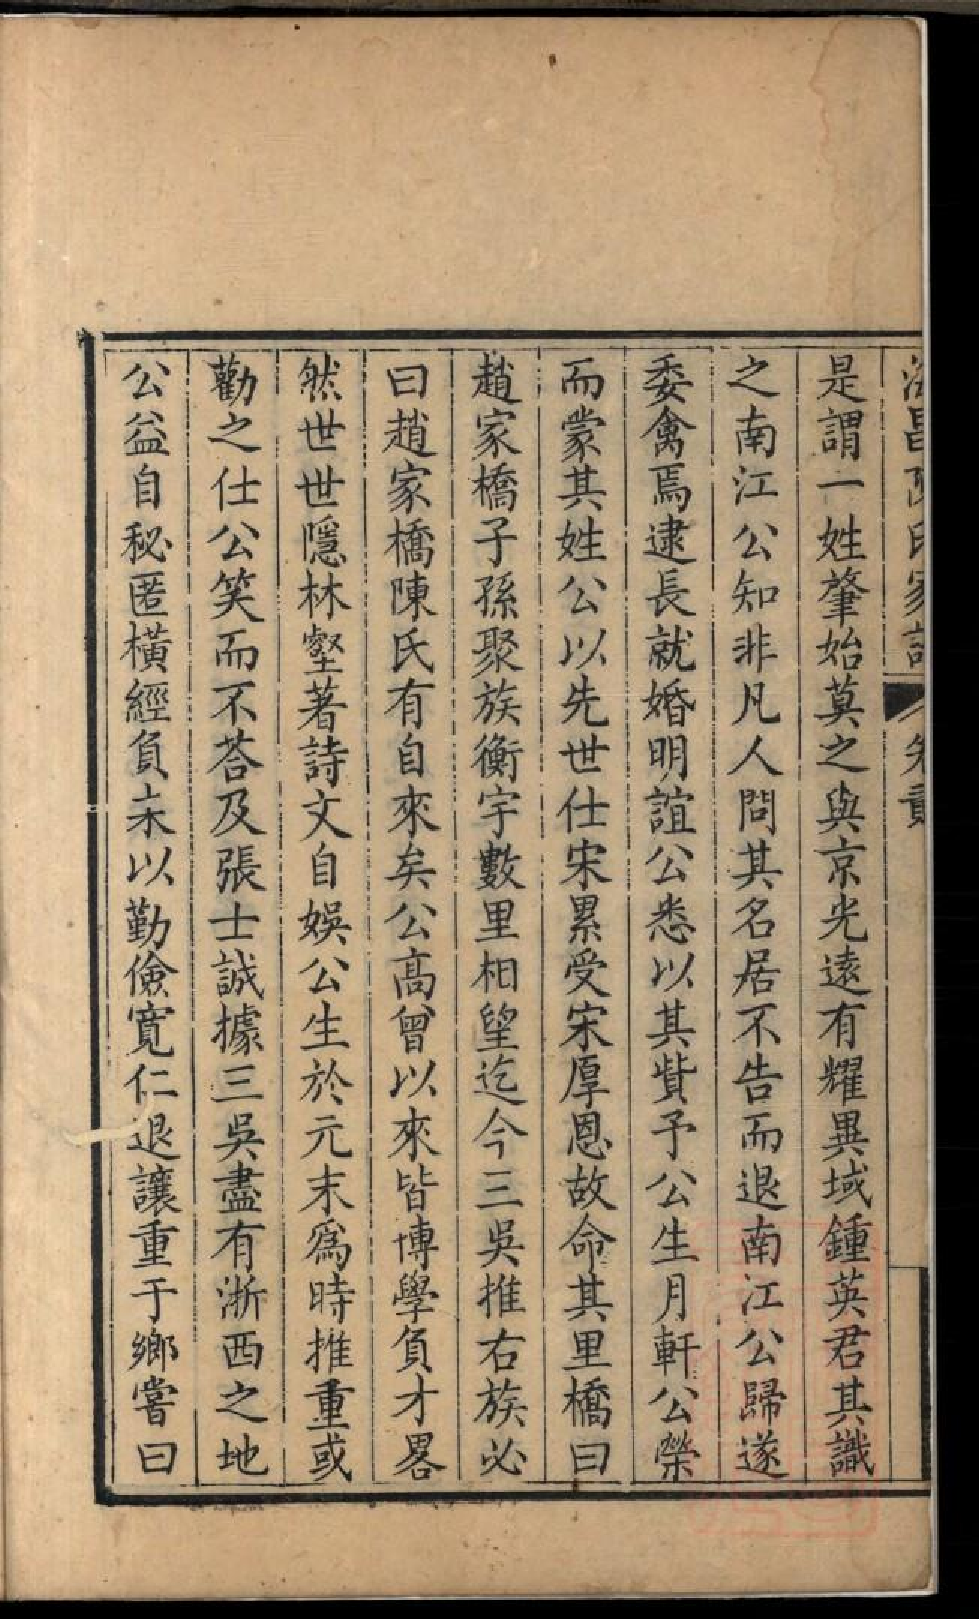 海昌陳氏家譜
是謂一姓肇始莫之與京光遠有耀異域鍾英君其識
之南江公知非凡人問其名居不告而退南江公歸遂
委禽焉逮長就婚明誼公悉以其貲予公生月軒公榮
而蒙其姓公以先世仕宋累受宋厚恩故命其里橋曰
趙家橋子孫聚族衡宇數里相望迄今三吳推右族必
曰趙家橋陳氏有自來矣公高曾以來皆博學負才畧
然世世隱林壑著詩文自娛公生於元末為時推重或
勸之仕公笑而不荅及張士誠據三吳盡有浙西之地
公益自秘匿橫經負耒以勤儉寬仁退讓重于鄉嘗曰